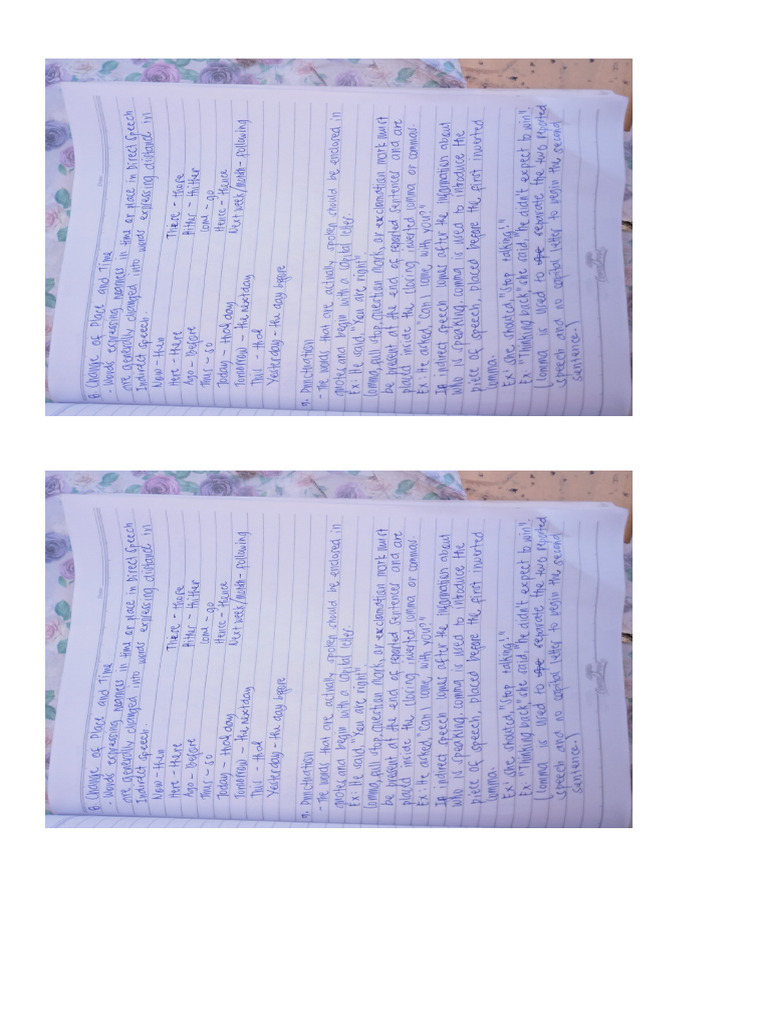 8. Change of Place and Time
- Words expressing nearness in time or place in Direct Speech
are generally changed into words expressing distance in
Indirect Speech.
Now - then
Here - there
Ago - before
Thus - so
Today - that day
Tomorrow - the next day
This - that
Yesterday - the day before
There - there
Hither - thither
Come - go
Hence - thence
Next week/month - following
9. Punctuation
- The words that are actually spoken should be enclosed in
quotes and begin with a capital letter.
Ex: He said, "You are right"
Comma, full stop, question mark, or exclamation mark must
be present at the end of reported sentences and are
placed inside the closing inverted comma or commas.
Ex: He asked, "Can I come with you?"
If indirect speech comes after the information about
who is speaking, comma is used to introduce the
piece of speech, placed before the first inverted
comma.
Ex: She shouted, "Stop talking!"
Ex: "Thinking back," she said, "he didn't expect to win!
(Comma is used to separate the two reported
speech and no capital letter to begin the second
sentence.)
8. Change of Place and Time
- Words expressing nearness in time or place in Direct Speech
are generally changed into words expressing distance in
Indirect Speech.
Now - then
Here - there
Ago - before
Thus - so
Today - that day
Tomorrow - the next day
This - that
Yesterday - the day before
There - there
Hither - thither
Come - go
Hence - thence
Next week/month - following
9. Punctuation
- The words that are actually spoken should be enclosed in
quotes and begin with a capital letter.
Ex: He said, "You are right"
Comma, full stop, question mark, or exclamation mark must
be present at the end of reported sentences and are
placed inside the closing inverted comma or commas.
Ex: He asked, "Can I come with you?"
If indirect speech comes after the information about
who is speaking, comma is used to introduce the
piece of speech, placed before the first inverted
comma.
Ex: She shouted, "Stop talking!"
Ex: "Thinking back," she said, "he didn't expect to win!
(Comma is used to separate the two reported
speech and no capital letter to begin the second
sentence.)